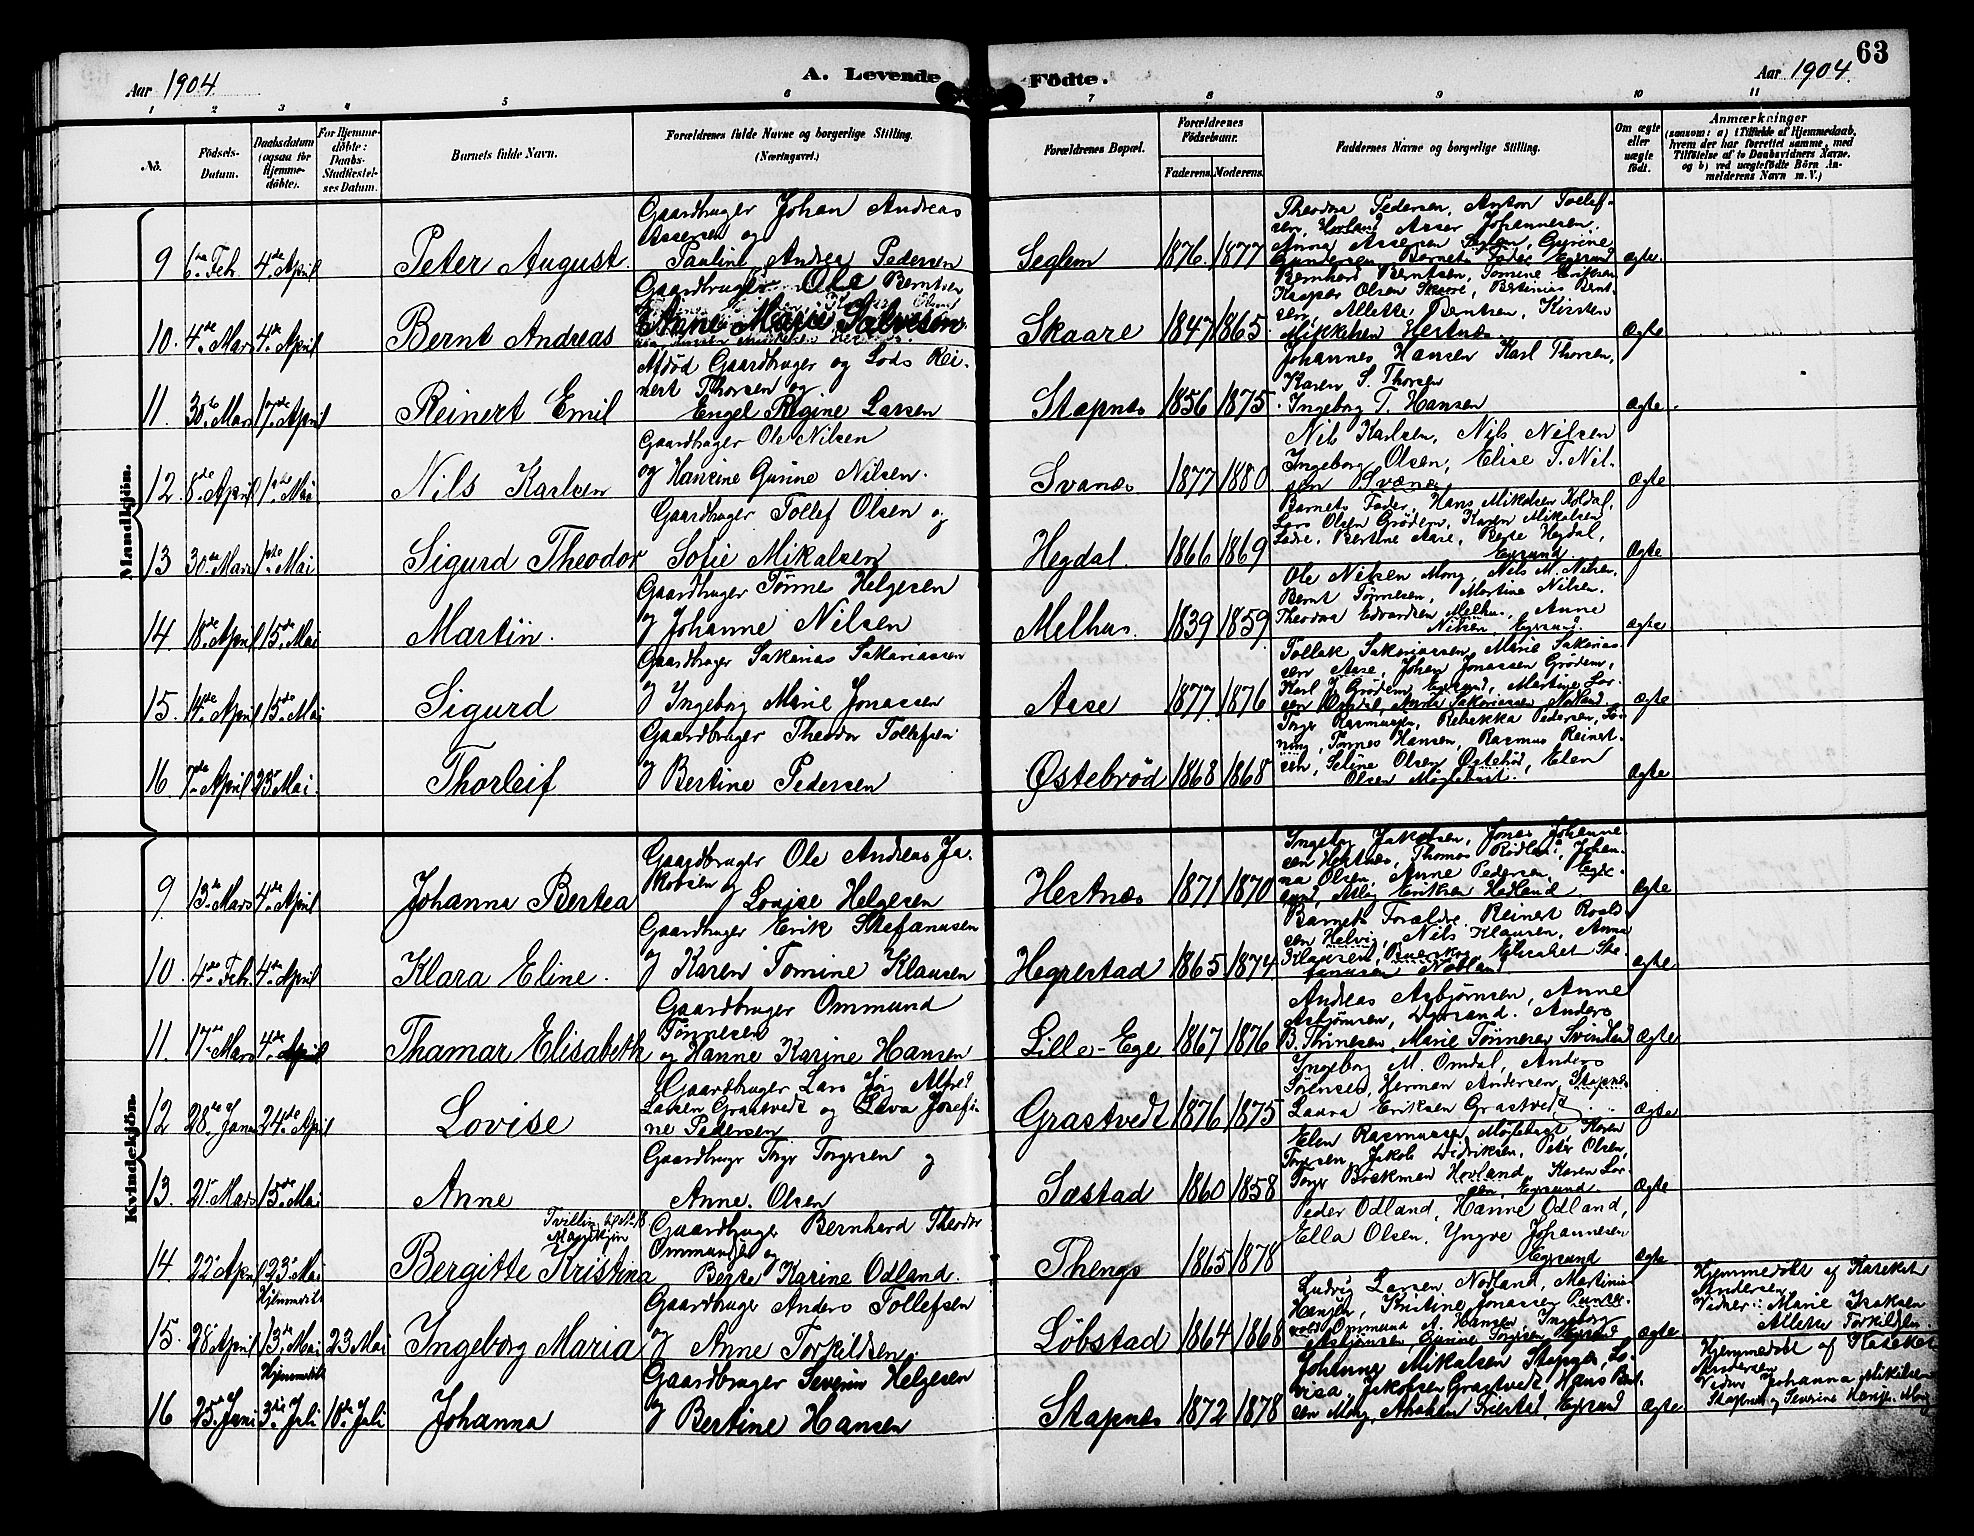 Aar 1904
A. Levende Födte.
Aar 1904
63
1 2 3 4 5 6 7 8 9 10 11
No.
Födsels-Datum.
Daabsdatum (ogsaa for Hjemmedöbte).
For Hjemmedöbte: Daabs-Stadfæstelses Datum.
Barnets fulde Navn.
Forældrenes fulde Navne og borgerlige Stilling. (Næringsvei.)
Forældrenes Bopæl.
Forældrenes Födselsaar.
Faderens. Moderens.
Faddernes Navne og borgerlige Stilling.
Om ægte eller uægte födt.
Anmærkninger
(saasom: a) i Tilfælde af Hjemmedaab, hvem der har forrettet samme, med Tilföielse af to Daabsvidners Navne, og b) ved uægtefödte Börn Anmelderens Navn m. V.)
Mandkjön.
9 6te Feb. 4de April Peter August. Gaardbruger Johan Andreas Assersen og Pauline Andrea Pedersen Seglem 1876 1877 Theodora Pedersen, Anton Tollefsen, Hovland Asser Johannesen, Anna Assersen Seglem, Gurine Gundersen Barnets Fader Egrsund ægte
10. 4de Mars 4de April Bernt Andreas Gaardbruger Ole Berntsen Anne Marie Salvesen Skaare 1847 1865 Bernhard Berntsen, Tomine Eriksen Kasper Olsen Skaare, Bertinius Berntsen, Allette Berntsen, Kirsten Mikkelsen Hestnæs ægte
11. 30te Mars 17de April Reinert Emil Afdöd Gaardbruger og Lods Reinert Thorsen og Engel Regine Larsen Stapnæs 1856 1875 Johannes Hansen Karl Thorsen, Karen S. Thorsen Ingeborg T. Hansen ægte
12. 8de April 1ste Mai Nils Karlsen Gaardbruger Ole Nilsen og Hansine Gurine Nilsen. Svanæs 1877 1880 Nils Karlsen, Nils Nilsen Ingeborg Olsen, Elise T. Nilsen Svanæs ægte
13 30te Mars 1ste Mai Sigurd Theodor Gaardbruger Tollef Olsen og Sofie Mikalsen Hegdal. 1866 1869 Barnets Fader, Hans Mikalsen Koldal, Lars Olsen Grödem, Karen Mikalsen Bertine Aase, Berte Hegdal, Egrsund. ægte
14 18de April 15de Mai Martin. Gaardbruger Tönnes Helgesen og Johanne Nilsen Melhus. 1839 1859 Ole Nilsen Mong, Nils M. Nilsen, Bernt Tönnesen, Martine Nilsen, Theodora Edvardsen Melhus, Anne Nilsen Egrsund. ægte
15. 14de April 15de Mai Sigurd Gaardbruger Sakarias Sakariassen og Ingeborg Marie Jonassen Aase 1877 1876 Tollak Sakariassen, Marie Sakariassen Aase, Johan Jonassen Grödem, Karl J. Grödem Egrsund, Martine Larsen Omdal, Anna Sakariassen Nodland ægte
16. 7de April 23de Mai. Thorleif Gaardbruger Theodor Tollefsen og Bertine Pedersen Østebrød 1868 1868 Torger Rasmussen, Rebekka Pedersen, Tönnes Hansen, Rasmus Reinertsen, Seline Olsen Östebröd, Elen Olsen Möglebust. ægte
Kvindekjön.
9. 13de Mars 4de April Johanna Bertea Gaardbruger Ole Andreas Jakobsen og Lovise Helgesen Hestnæs 1871 1870 Ingeborg Jakobsen, Jonas Johannesen Hestnæs, Thomas Rödland, Johanna Olsen, Anne Pedersen, Egrsund, Eriksen Hadland ægte
10. 4de Feb. 4de April Klara Eline. Gaardbruger Erik Stefanusen og Karen Tomine Klausen Hegrestad 1865 1874 Barnets Forældre, Reinert Roaldsen Helvig, Nils Klausen, Anna Klausen, Elisabet Stefanusen Nodland ægte
11. 17de Mars 4de April Thamar Elisabeth Gaardbruger Ommund Tönnesen og Hanne Karine Hansen Lille-Ege 1867 1876 Andreas Asbjørnsen, Anne Asbjørnsen, Dyrsand. Anders B. Thinesen, Marie Tönnesen Svindland ægte
12 28de Januar 24de April Lovise Gaardbruger Lars Jörg Alfred Larsen Grastvedt og Lava Josefine Pedersen Grastvedt 1876 1875 Ingeborg M. Omdal, Anders Sörensen, Herman Andersen, Stapnæs Laura Eriksen Grastvedt ægte
13. 21de Mars 15de Mai Anne Gaardbruger Torger Torgersen og Anne Olsen Sæstad 1860 1858 Elen Rasmussen Möglebust, Karen Torgersen, Jakob Didriksen, Peter Olsen, Torger Böckman Hovland, Karen Larsen, Egrsund. ægte
14. 22de April 23de Mai Bergitte Kristina Tvilling Mandkjön Gaardbruger Bernhard Theodor Ommundsen og Berte Karine Odland. Thengs 1865 1878 Peder Odland, Hanne Odland, Ella Olsen, Yngve Johannesen Egrsund ægte
15. 28de April Hjemmedöbt 13de Mai 23 Mai Ingeborg Maria Gaardbruger Anders Tollefsen og Anne Torkildsen. Löbstad 1864 1868 Ludvig Larsen Nodland, Martinius Hansen, Kristine Jonassen Ommund A. Hansen, Ingeborg Asbjörnsen, Gurine Torgersen Egrsund ægte Hjemmedöbt af Kateket Andersen Vidner: Marie Isaksen Allette Torkildsen
16 25de Juni Hjemmedöbt 3die Juli 10de Juli Johanna Gaardbruger Severin Helgesen og Bertine Hansen Stapnæs 1872 1878 Johanne Mikalsen Stapnæs, Lovisa Jakobsen Grastvedt Hans Mong, Egrsund ægte Hjemmedöbt af Kateket Andersen Vidner Johanna Mikalsen Stapnæs og Severine Hansen Mong